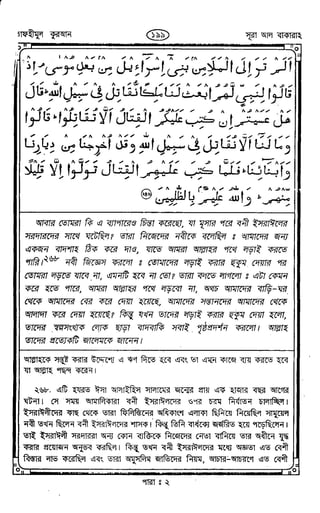 তাফহীমুল কুরআন
১৯৯
সূরা আল বাকারাহ
أَلَمْ تَرَ إِلَى الْمَلَإِ مِنْ بَنِي إِسْرَاءِيلَ مِنْ بَعْدِ مُوسَى إِذْ
قَالُوا لِنَبِيٍّ لَهُمُ ابْعَثْ لَنَا مَلِكًا نُقَاتِلْ فِي سَبِيلِ اللهِ قَالَ
هَلْ عَسَيْتُمْ إِنْ كُتِبَ عَلَيْكُمُ الْقِتَالُ أَلَّا تُقَاتِلُوا قَالُوا
وَمَا لَنَا أَلَّا نُقَاتِلَ فِي سَبِيلِ اللهِ وَقَدْ أُخْرِجْنَا مِنْ دِيَارِنَا
وَأَبْنَائِنَا فَلَمَّا كُتِبَ عَلَيْهِمُ الْقِتَالُ تَوَلَّوْا إِلَّا قَلِيلًا
مِنْهُمْ وَاللهُ عَلِيمٌ بِالظَّالِمِينَ
আবার তোমরা কি এ ব্যাপারেও চিন্তা করেছো, যা মূসার পরে বনী ইসরাঈলের
সরদারদের সাথে ঘটেছিল? তারা নিজেদের নবীকে বলেছিল ঃ আমাদের জন্য
একজন বাদশাহ ঠিক করে দাও, যাতে আমরা আল্লাহর পথে লড়াই করতে
পারি।২৬৮ নবী জিজ্ঞেস করলো ঃ তোমাদের লড়াই করার হুকুম দেয়ার পর
তোমরা লড়তে যাবে না, এমনটি হবে না তো? তারা বলতে লাগলো ঃ এটা কেমন
করে হতে পারে, আমরা আল্লাহর পথে লড়বো না, অথচ আমাদের বাড়ি-ঘর
থেকে আমাদের বের করে দেয়া হয়েছে, আমাদের সন্তানদের আমাদের থেকে
আলাদা করে দেয়া হয়েছে? কিন্তু যখন তাদের লড়াই করার হুকুম দেয়া হলো,
তাদের স্বল্পসংখ্যক লোক ছাড়া বাদবাকি সবাই পৃষ্ঠপ্রদর্শন করলো। আল্লাহ
তাদের প্রত্যেকটি জালেমকে জানেন।
আল্লাহকে সন্তুষ্ট করার উদ্দেশ্যে এ ঋণ দিতে হবে এবং তা এমন কাজে ব্যয় করতে হবে
যা আল্লাহ পছন্দ করেন।
২৬৮. এটি হযরত ঈসা আলাইহিস সালামের জন্মের প্রায় এক হাজার বছর আগের
ঘটনা। সে সময় আমালিকারা বনী ইসরাঈলদের ওপর চরম নির্যাতন চালাচ্ছিল।
ইসরাঈলীদের কাছ থেকে তারা ফিলিস্তিনের অধিকাংশ এলাকা ছিনিয়ে নিয়েছিল সামুয়েল
নবী তখন ছিলেন বনী ইসরাঈলদের শাসক। কিন্তু তিনি বার্ধক্যে জর্জরিত হয়ে পড়েছিলেন।
তাই ইসরাঈলী সরদাররা অন্য কোন ব্যক্তিকে নিজেদের নেতা বানিয়ে তার অধীনে যুদ্ধ
করার প্রয়োজন অনুভব করছিল। কিন্তু তখন বনী ইসরাঈলদের মধ্যে অজ্ঞতা এত বেশী
বিস্তার লাভ করেছিল এবং তারা অমুসলিম জাতিদের নিয়ম, আচার-আচরণে এত বেশী
পারা ঃ ২